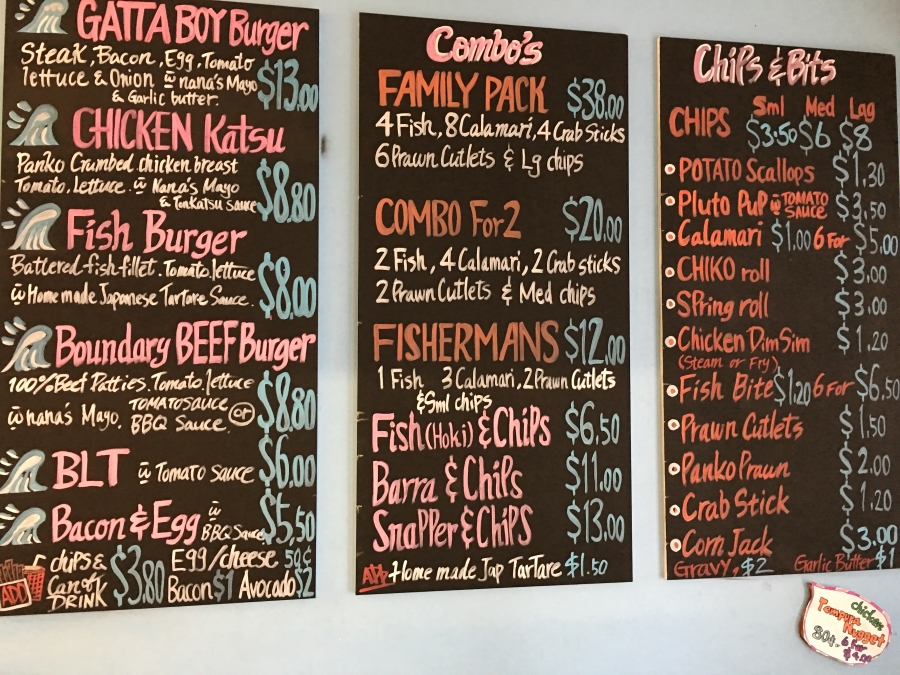 GATTA BOY Burger
Steak, Bacon, Egg, Tomato
lettuce & Onion w̄ nana's Mayo
& Garlic butter. $13.00
CHICKEN Katsu
Panko Crumbed chicken breast
Tomato, lettuce. w̄ Nana's Mayo
& Tonkatsu sauce $8.80
Fish Burger
Battered fish fillet. Tomato, lettuce
w̄ Home made Japanese Tartare Sauce. $8.00
Boundary BEEF Burger
100% Beef Patties. Tomato, lettuce
w̄ nana's Mayo. TOMATO SAUCE or
BBQ Sauce $8.80
BLT w̄ Tomato sauce $6.00
Bacon & Egg w̄ BBQ Sauce $5.50
ADD chips & Can of DRINK $3.80
Egg/cheese 50¢
Bacon $1 Avocado $2
Combo's
FAMILY PACK $38.00
4 Fish, 8 Calamari, 4 Crab Sticks
6 Prawn Cutlets & Lg chips
COMBO For 2 $20.00
2 Fish, 4 Calamari, 2 Crab sticks
2 Prawn Cutlets & Med chips
FISHERMANS $12.00
1 Fish 3 Calamari, 2 Prawn Cutlets
& Sml chips
Fish (Hoki) & Chips $6.50
Barra & Chips $11.00
Snapper & Chips $13.00
Home made Jap TarTare $1.50
Chips & Bits
Sml Med Lag
CHIPS $3.50 $6 $8
POTATO Scallops $1.30
Pluto Pup w̄ TOMATO SAUCE $3.50
Calamari $1.00 6 For $5.00
CHIKO roll $3.00
Spring roll $3.00
Chicken Dim Sim $1.20
(Steam or Fry)
Fish Bite $1.20 6 For $6.50
Prawn Cutlets $1.50
Panko Prawn $2.00
Crab Stick $1.20
Corn Jack $3.00
Gravy, $2 Garlic Butter $1
chicken
Tempura
Nugget
80¢. 6 For
$4.00